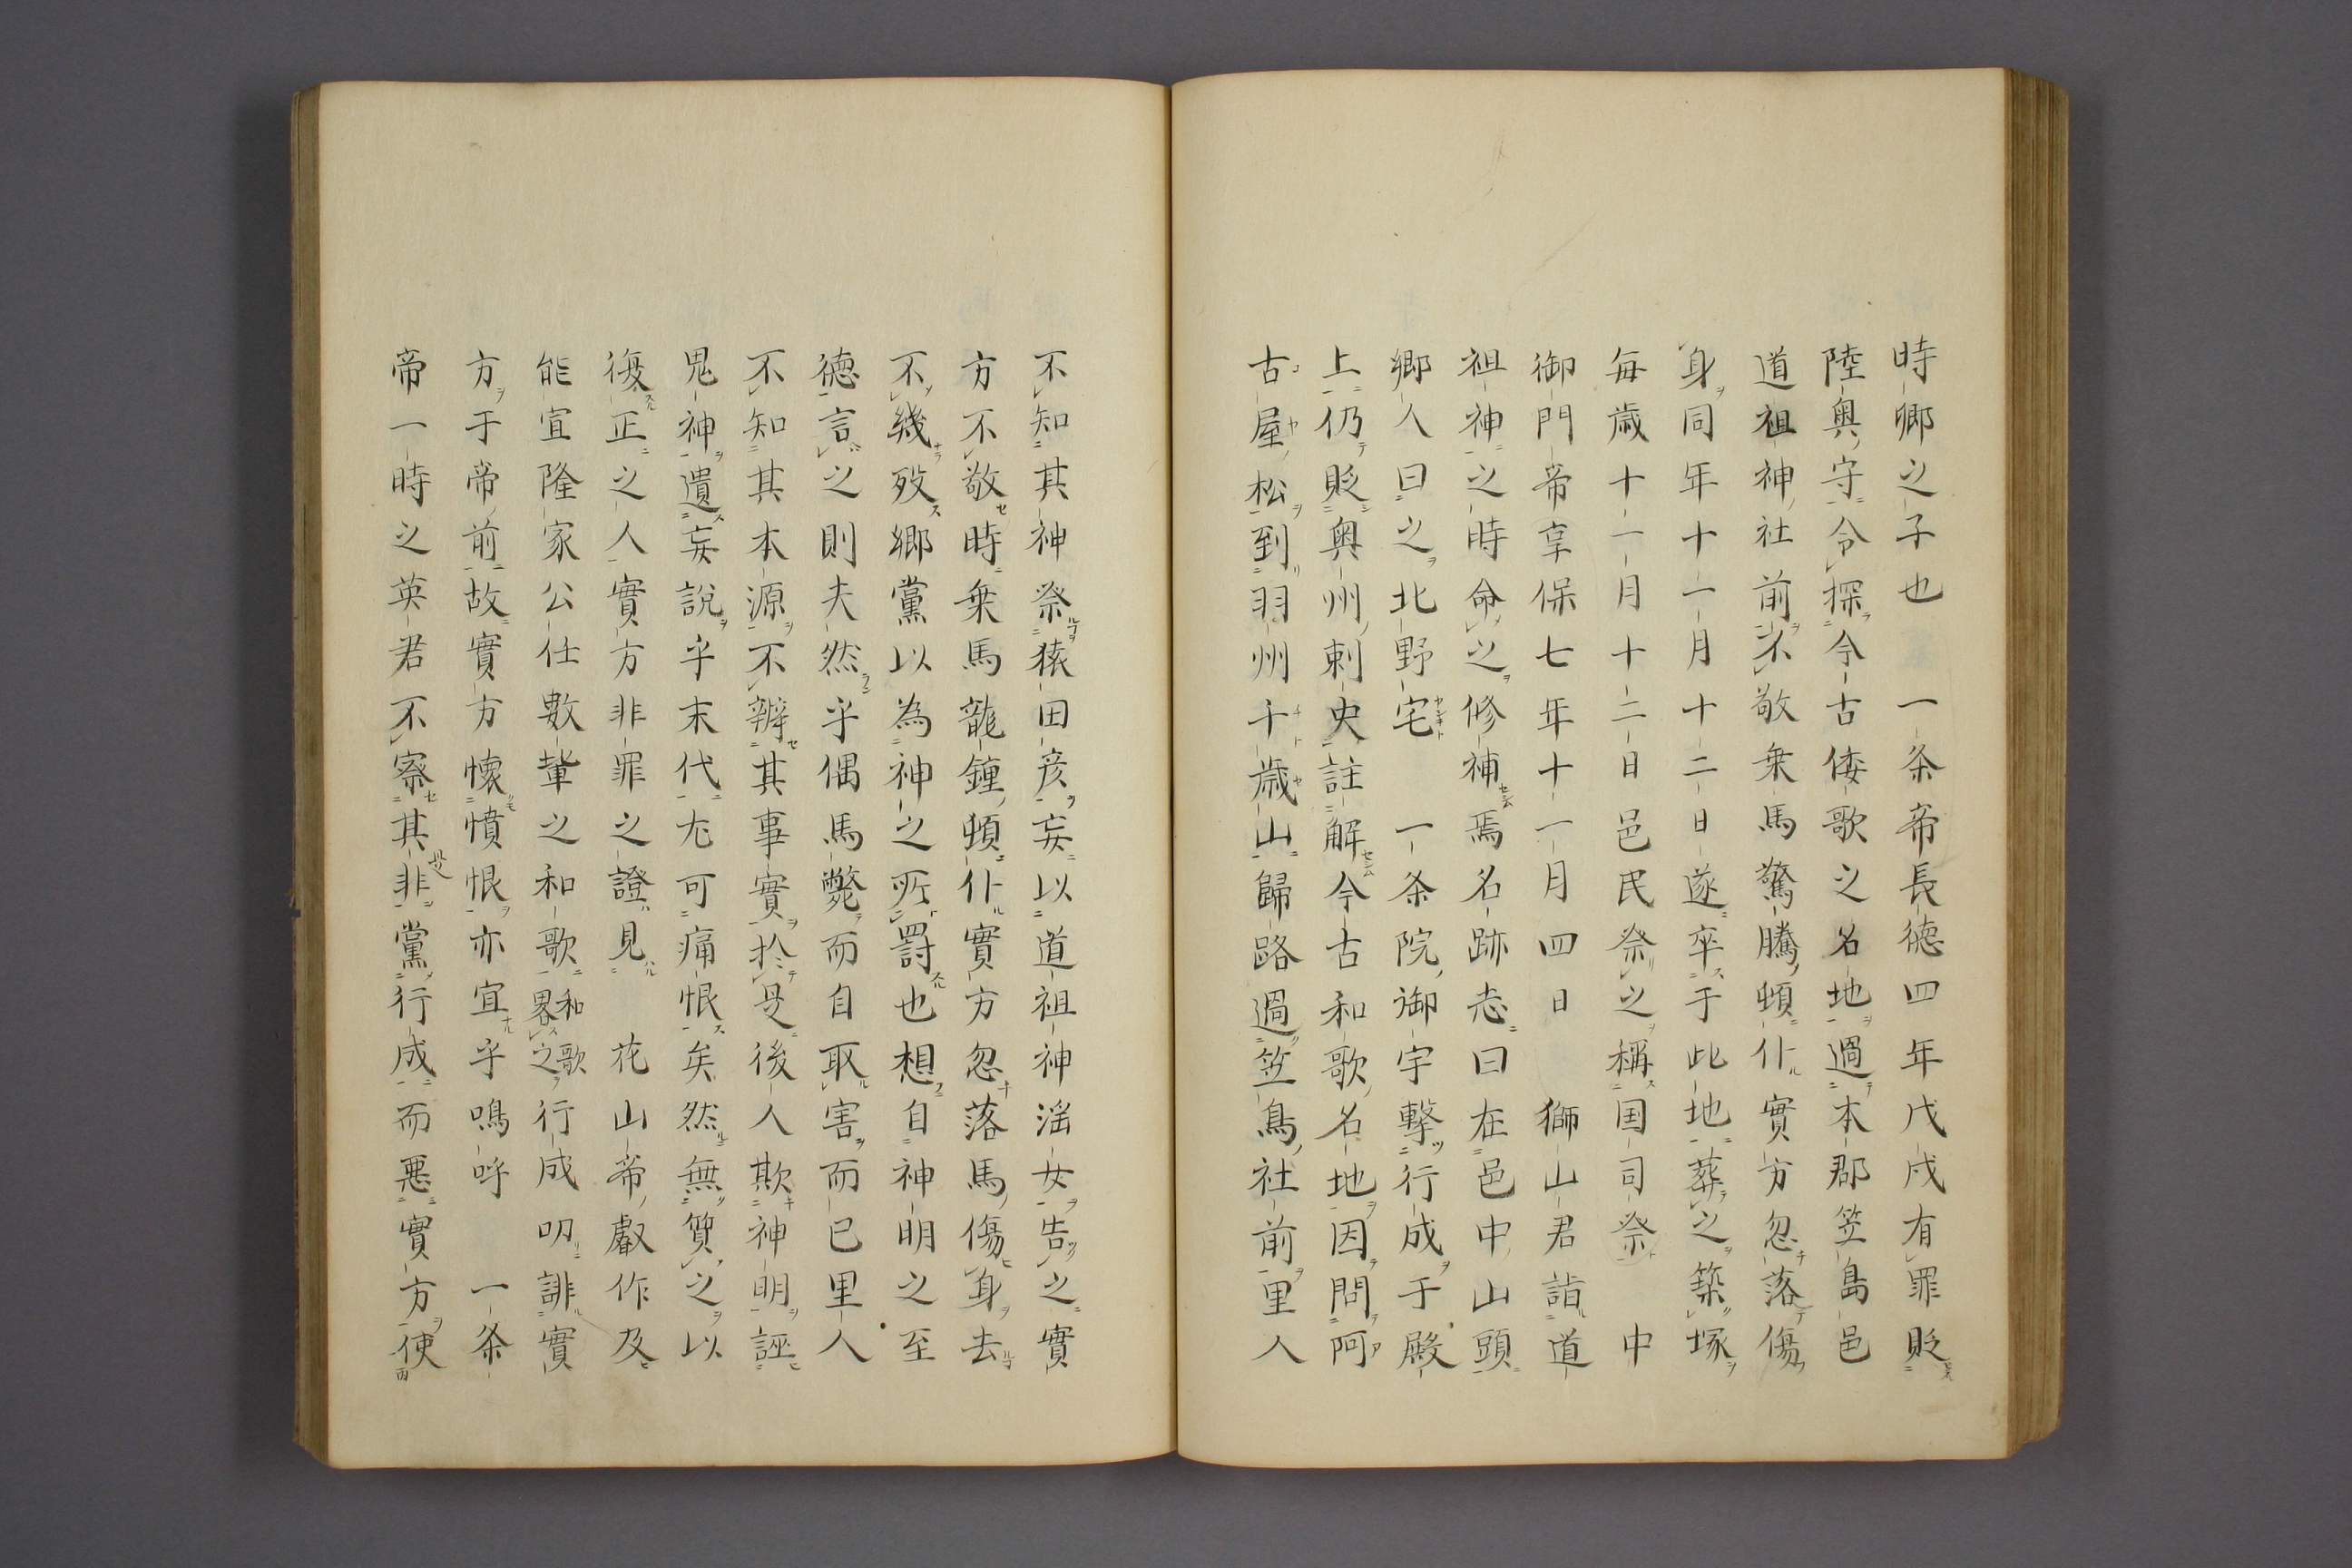 時卿之子也　一条帝長徳四年戊戌有罪貶
陸奥守令探今古倭歌之名地過本郡笠島邑
道祖神社前不敬乗馬驚騰頓仆實方忽落傷
身同年十一月十二日遂卒于此地葬之築塚
毎歳十一月十二日邑民祭之稱国司祭　中
御門帝享保七年十一月四日　獅山君詣道
祖神之時命之修補焉名跡志曰在邑中山頭
郷人曰之北野宅　一条院御宇撃行成于殿
上仍貶奥州刺史註解今古和歌名地因問阿
古屋松到羽州千歳山歸路過笠鳥社前里人
不知其神祭猿田彦妄以道祖神滛女告之實
方不敬時乗馬龍鍾頓仆實方忽落馬傷身去
不幾歿郷黨以為神之所罰也想自神明之至
徳言之則夫然乎偶馬斃而自取害而已里人
不知其本源不辨其事實扵是後人欺神明誣
鬼神遺妄説乎末代尤可痛恨矣然無質之以
復正之人實方非罪之證見　花山帝叡作及
能宣隆家公仕數輩之和歌和歌畧之行成叨誹實
方于帝前故實方懐憤恨亦宜乎嗚呼　一条
帝一時之英君不察其非黨行成而悪實方使